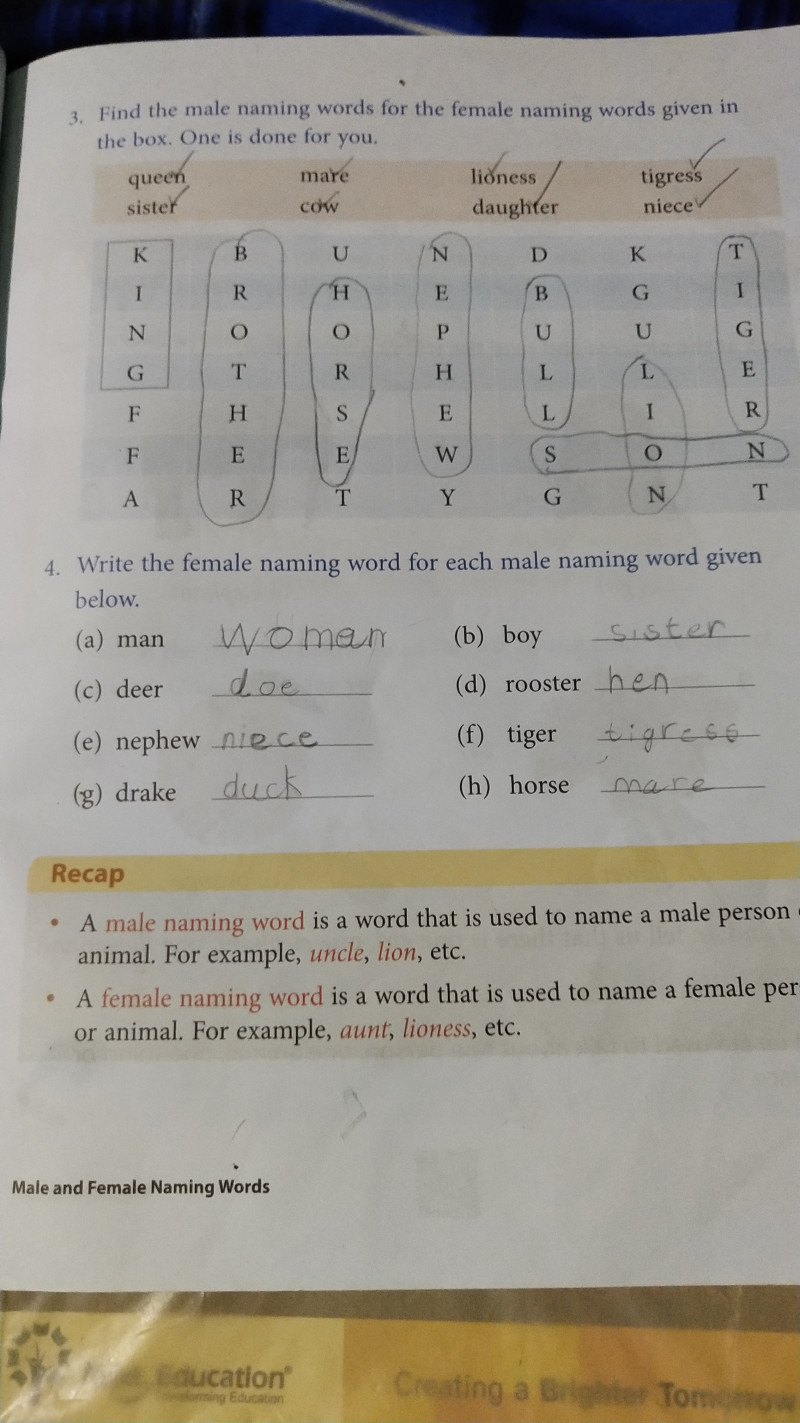 3. Find the male naming words for the female naming words given in
the box. One is done for you.
queen mare lioness tigress
sister cow daughter niece
K B U N D K T
I R H E B G I
N O O P U U G
G T R H L L E
F H S E L I R
F E E W S O N
A R T Y G N T
4. Write the female naming word for each male naming word given
below.
(a) man Woman (b) boy sister
(c) deer doe (d) rooster hen
(e) nephew niece (f) tiger tigress
(g) drake duck (h) horse mare
Recap
• A male naming word is a word that is used to name a male person
animal. For example, uncle, lion, etc.
• A female naming word is a word that is used to name a female per
or animal. For example, aunt, lioness, etc.
Male and Female Naming Words
Education®
Education
Creating a Brighter Tomorrow